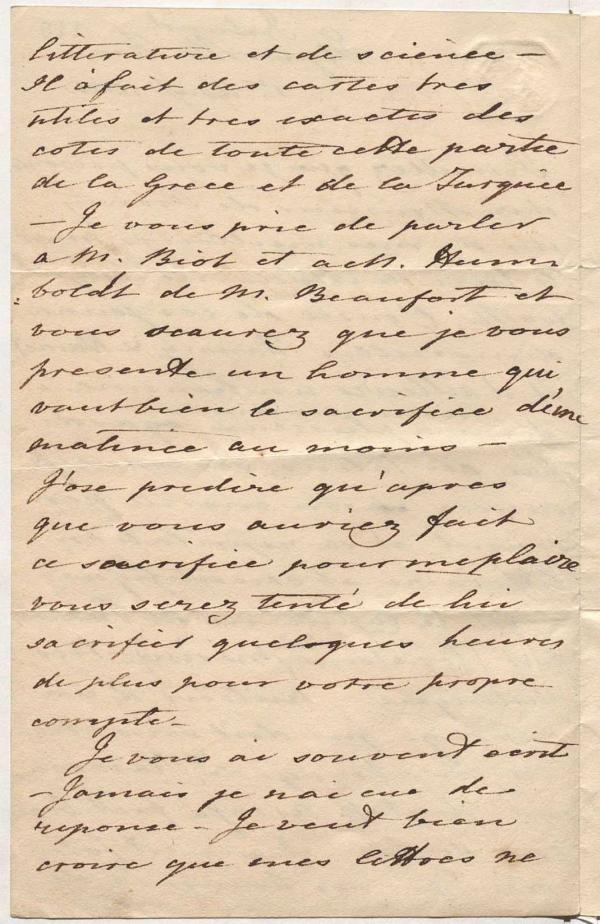 litterature et de science –
Il à fait des cartes tres
utiles et tres exactes des
cotes de toute cette partie
de la Grece et de la Turquie
– Je vous prie de parler
a M. Biot et a M. Hum
boldt de M. Beaufort et
vous scaurez que je vous
presente un homme qui
vaut bien le sacrifice d'une
matinée au moins –
J'ose predire qu'apres
que vous auriez fait
ce sacrifice pour me plaire
vous serez tenté de lui
sacrifier quelques heures
de plus pour votre propre
compte –
Je vous ai souvent ecrit
– Jamais je n'ai eue de
reponse – Je veut bien
croire que mes lettres ne